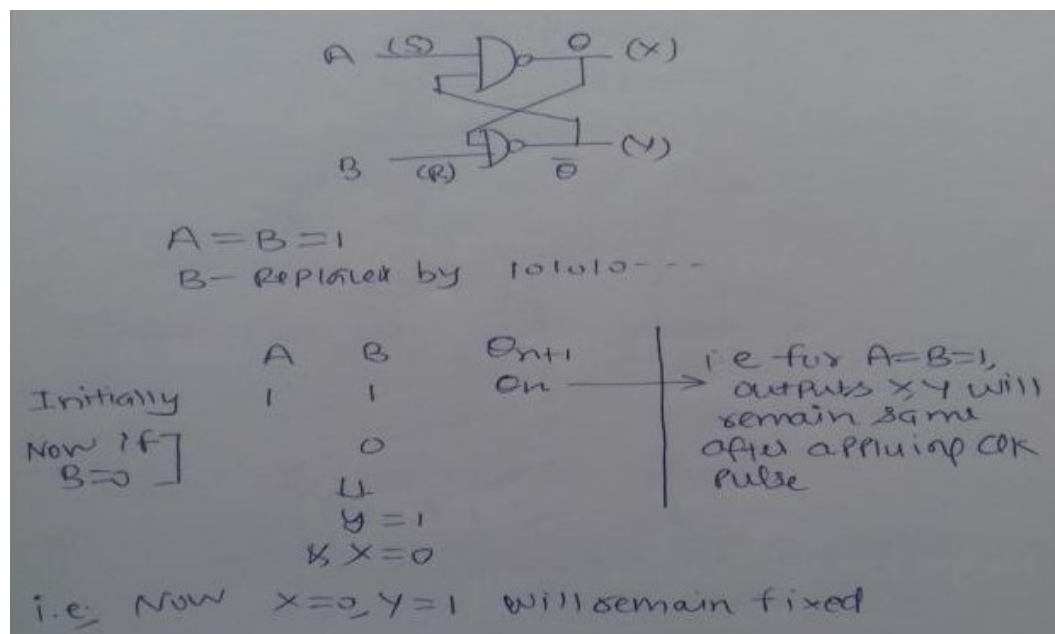 A (S) Q (X)
B (R) Q̅ (Y)
A = B = 1
B - Replaced by 101010----
A B Qn+1
Initially 1 1 Qn → i.e for A=B=1,
outputs X Y will
remain same
after applying clk
pulse
Now if B=0 ] 0
⇓
y = 1
& X = 0
i.e. Now X=0, Y=1 will remain fixed